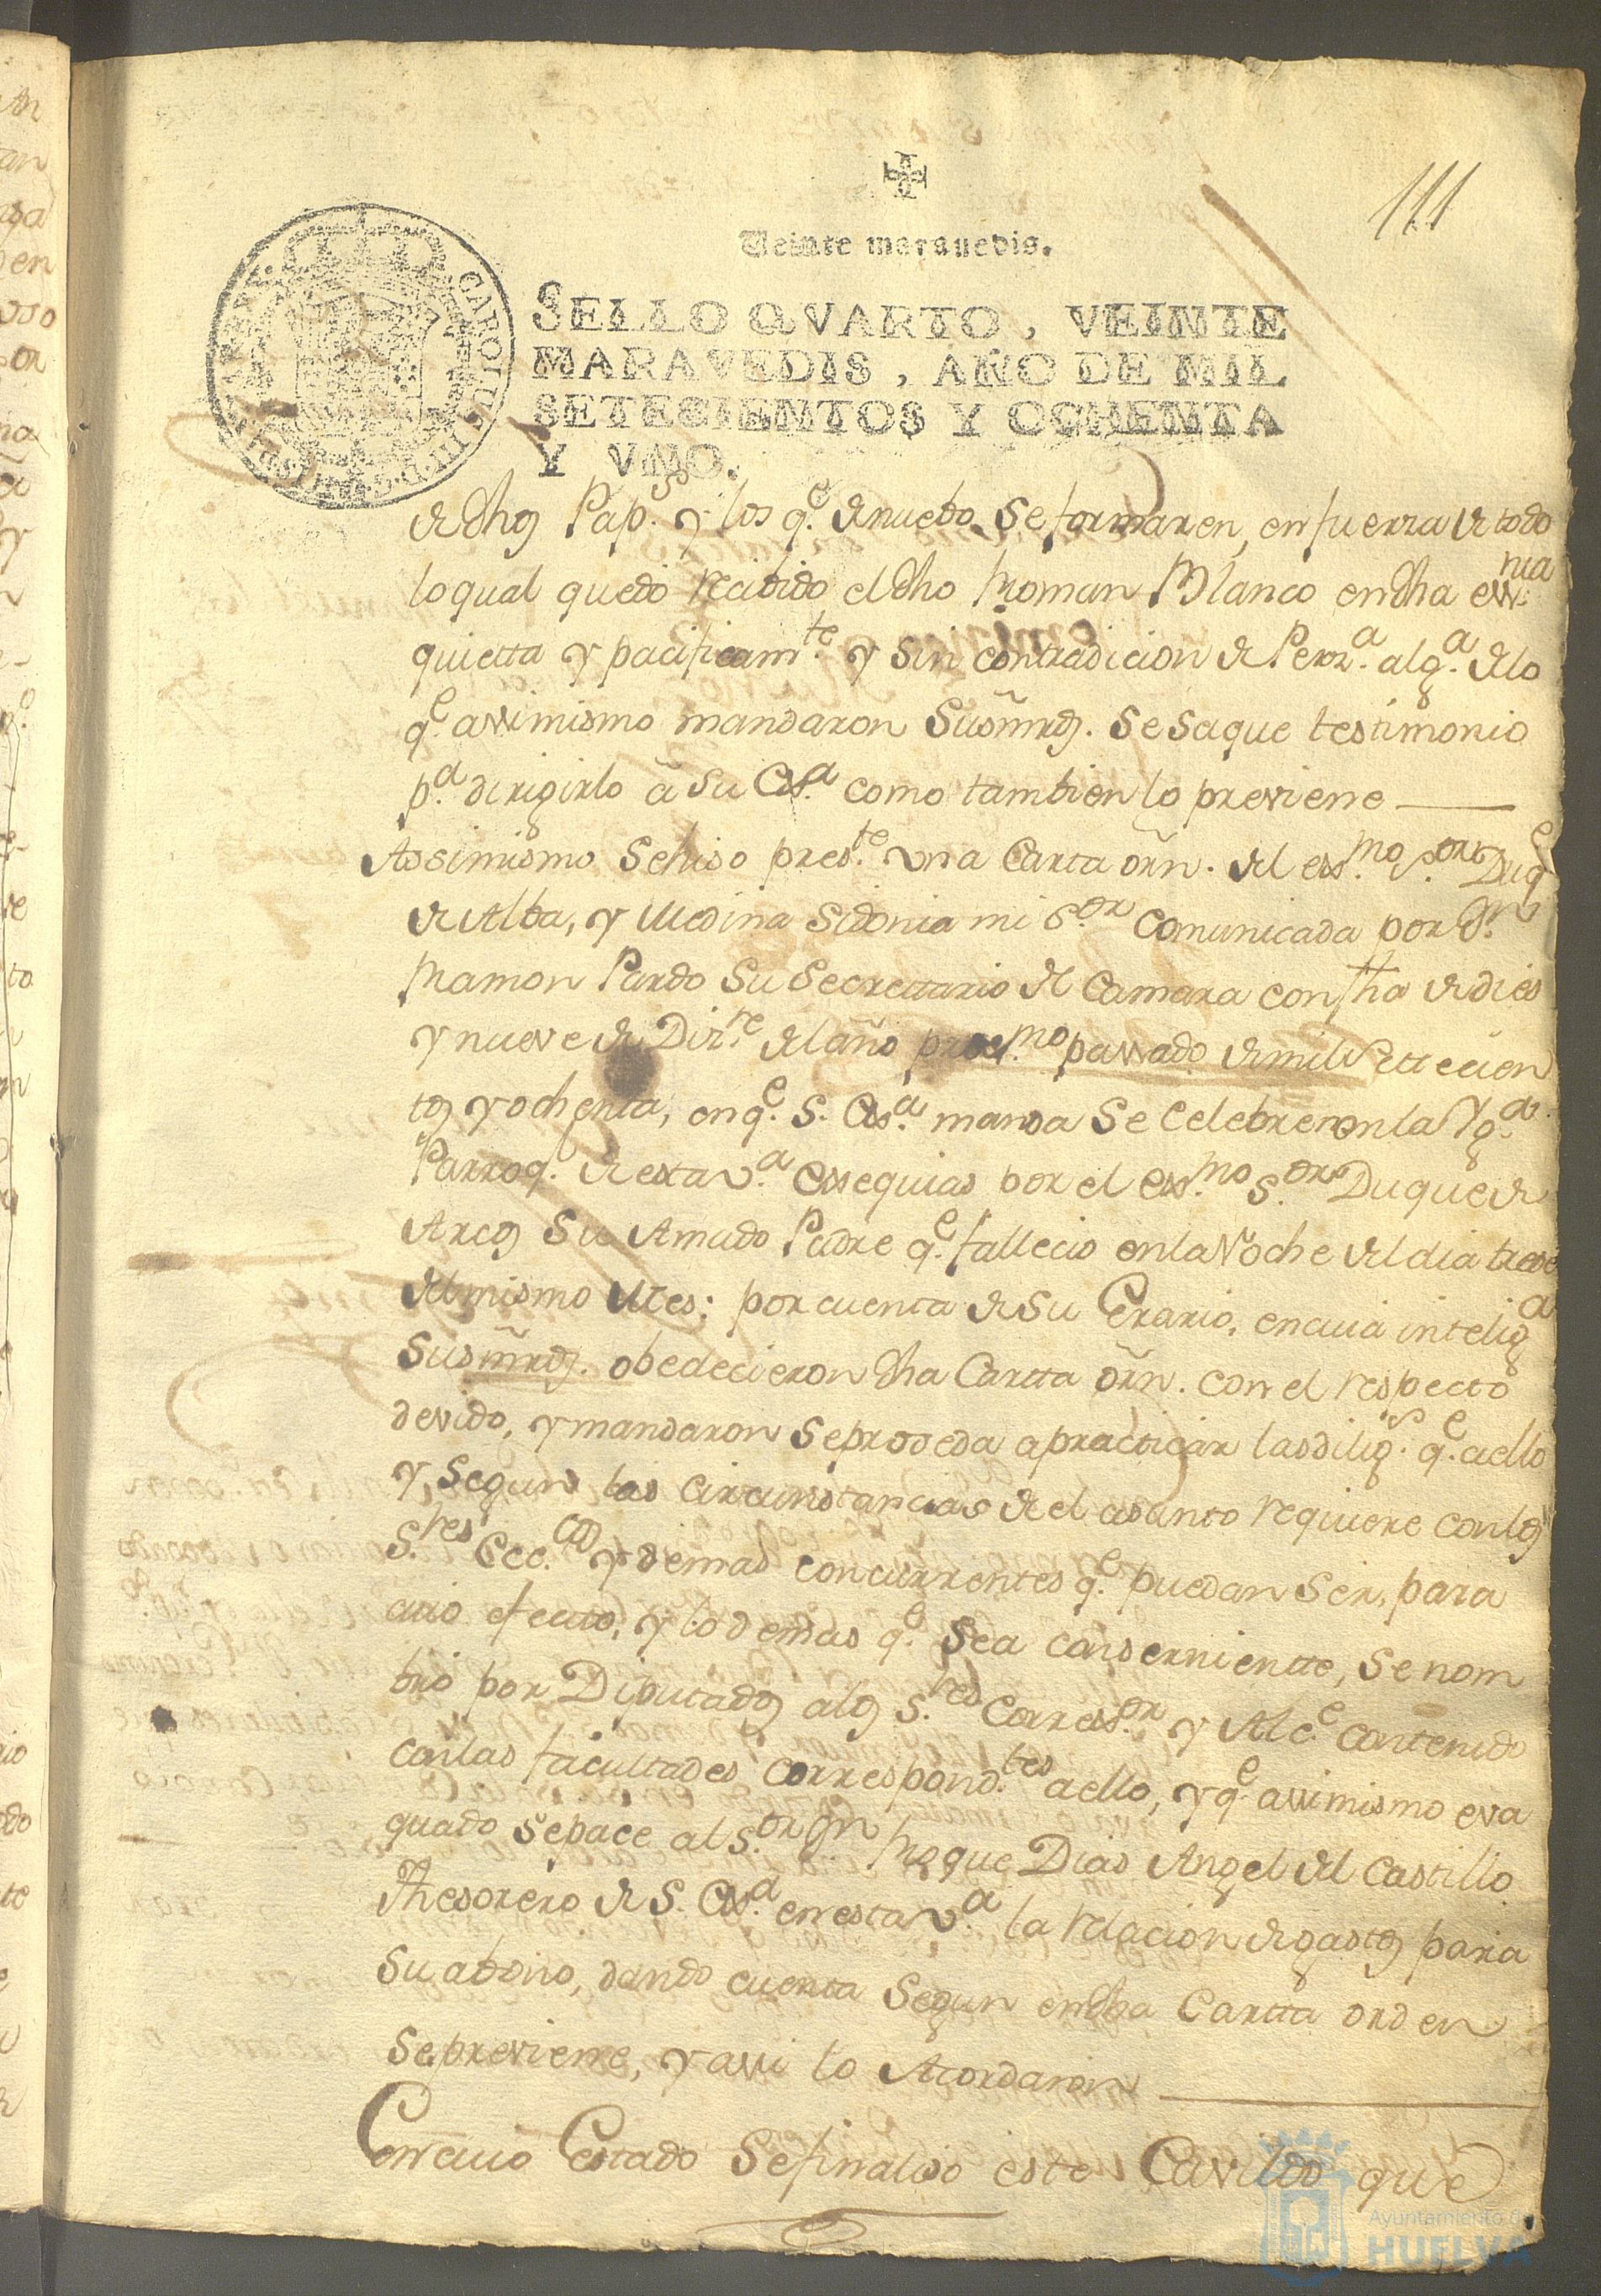 111
Veinte maravedis.
SELLO QVARTO, VEINTE
MARAVEDIS, AÑO DE MIL
SETECIENTOS Y OCHENTA
Y VNO.
CAROLUS III D. G.
de dhos Pap.s y los q.e de nuebo se formaren, en fuerza de todo
lo qual quedó recibido el dho Roman Blanco en dha essn.nia
quietta y pacificam.te y sin contradicion de Perz.a alg.a de lo
q.e assimismo mandaron Sus mrds. se saque testimonio
p.a dirigirlo â su Exs.a como tambien lo previene
Assimismo se hiso pres.te una Carta orn. del exs.mo S.or Duq.e
de Alba, y Medina Sidonia mi S.or comunicada por D.n
Ramon Pardo su Secrettario de Camara con fha de dies
y nueve de Diz.re del año prox.mo passado de mil settecien
tos y ochenta, en q.e S. Exs.a manda se celebren en la Yg.a
Parroq. de esta v.a exsequias por el exs.mo S.or Duque de
Arcos su Amado Padre q.e fallecio en la Noche del dia trese
del mismo Mes; por cuenta de su Erario, en cuia intelig.a
Sus mrds. obedecieron dha Cartta orn. con el respecto
devido, y mandaron se proseda a practicar las dilig.s q.e a ello
y segun las circunstancias de el asunto requiere con los
S.res Ecc.cos y demas concurrentes q.e puedan ser, para
cuio efecto, y lo demas q.e sea conserniente, se nom
bró por Diputados a los S.res Corress.or y Alc.e contenido
con las facultades correspond.tes a ello, y q.e assimismo eva
quado se pace al S.or D.n Roque Dias Angel del Castillo
Thesorero de S. Exs.a en esta v.a la relacion de gastos para
su abono, dando cuenta segun en dha Cartta orden
se previene, y assi lo Acordaron
En cuio Estado se finaliso este Cavildo que
Ayuntamiento de
HUELVA